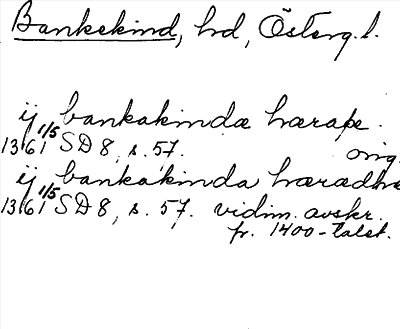 Bankekind, hd, Österg.l.
ij bankakindæ hæraþe.
1361 1/5 SD 8, s. 57. orig.
ij bankakinda hæradhe
1361 1/5 SD 8, s. 57. vidim. avskr.
fr. 1400-talet.